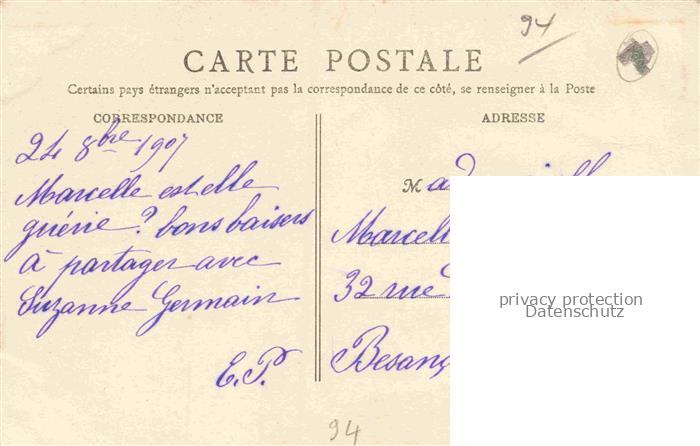 94
CARTE POSTALE
Certains pays étrangers n'acceptant pas la correspondance de ce côté, se renseigner à la Poste
CORRESPONDANCE
24 8bre 1907
Marcelle est elle
guérie ? bons baisers
à partager avec
Suzanne Germain
E.P.
ADRESSE
M
Marcell
32 rue
Besanç
privacy protection
Datenschutz
94